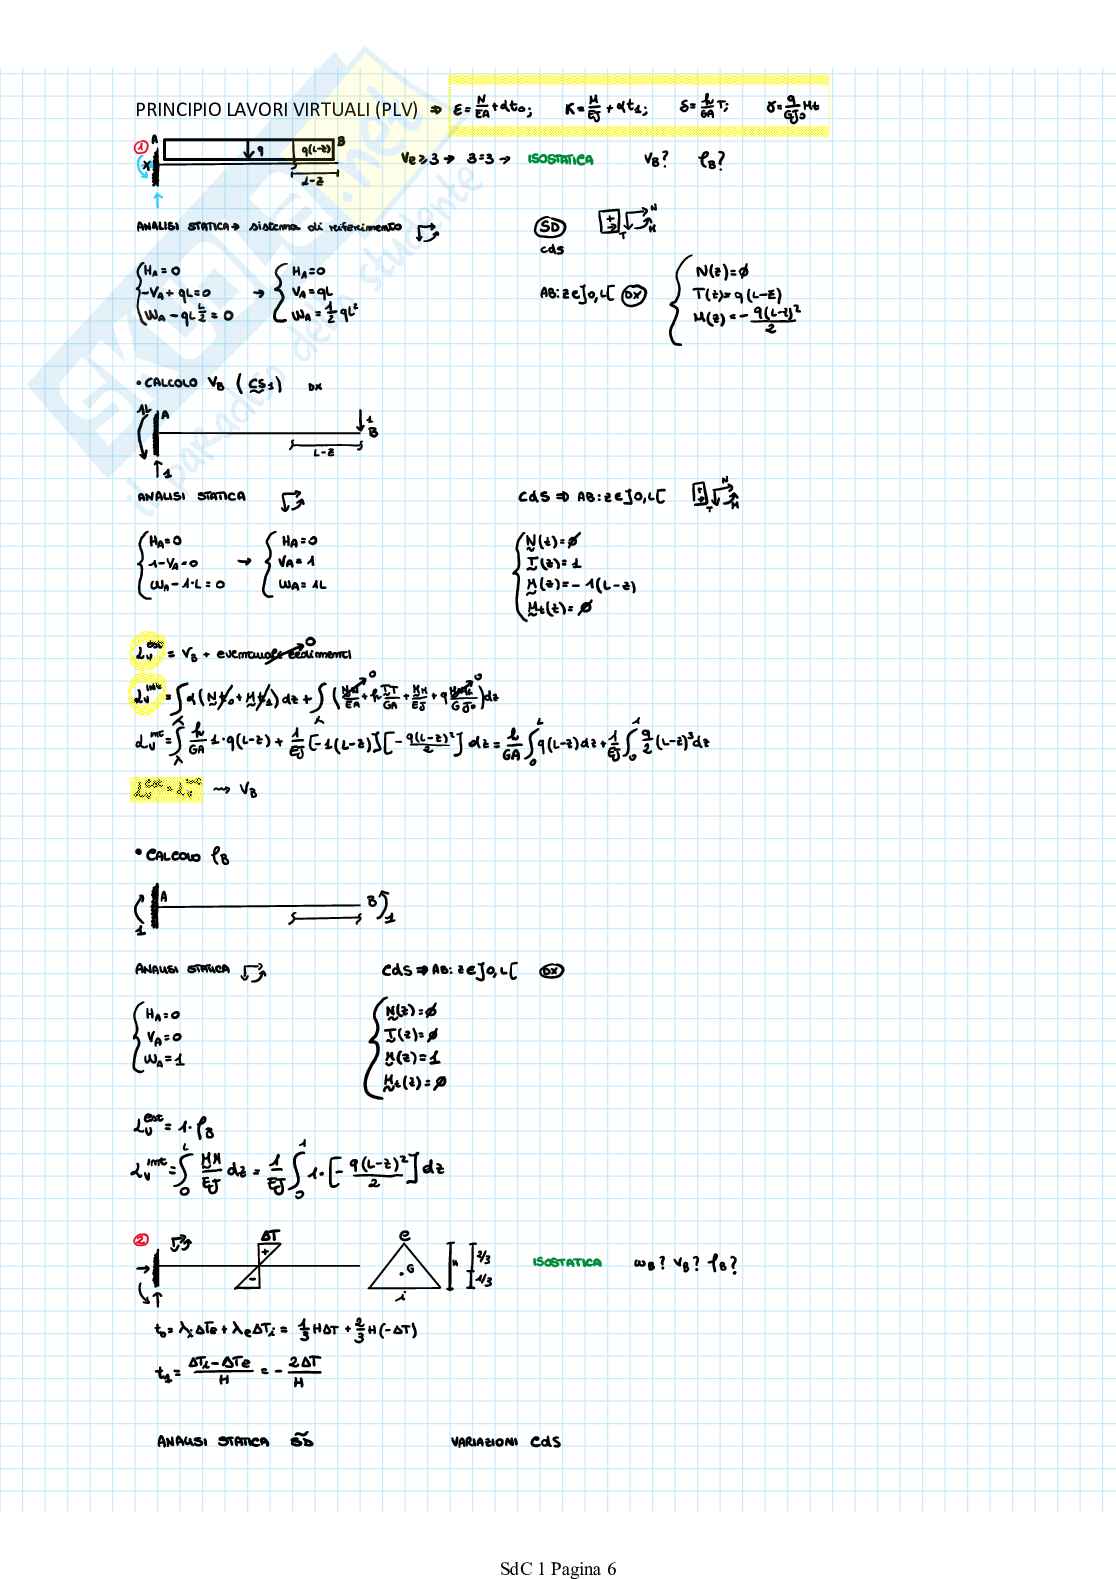 PRINCIPIO LAVORI VIRTUALI (PLV) ⇒ ε = N/EA + αt₀; K = M/EJ + αt₁; δ = h/GA T; γ = q/GJ₀ Mt
① A q q(L-z) B
X L-z
Ve≥3 → 3=3 → ISOSTATICA VB? φB?
ANALISI STATICA → sistema di riferimento
SD N T M
CdS
HA = 0
-VA + qL = 0
WA - qL L/2 = 0
→
HA = 0
VA = qL
WA = 1/2 qL²
AB: z∈]0,L[ DX
N(z) = ∅
T(z) = q(L-z)
M(z) = - q(L-z)²/2
• CALCOLO VB (CS1) DX
1L A 1 B
L-z
1
ANALISI STATICA
CdS ⇒ AB: z∈]0,L[ N T M
HA = 0
1-VA = 0
WA - 1·L = 0
→
HA = 0
VA = 1
WA = 1L
N(z) = ∅
T(z) = 1
M(z) = - 1(L-z)
Mt(z) = ∅
Lv^est = VB + eventuali cedimenti 0
Lv^int = ∫λ α(N t₀ + M t₁) dz + ∫λ (N N/EA + h T T/GA + M M/EJ + q Mt Mt/GJ₀) dz
Lv^int = ∫λ h/GA 1·q(L-z) + 1/EJ [-1(L-z)] [- q(L-z)²/2] dz = h/GA ∫₀^L q(L-z) dz + 1/EJ ∫₀^1 q/2 (L-z)³ dz
Lv^est = Lv^int ⇝ VB
• CALCOLO φB
A B
1 1
ANALISI STATICA CdS ⇒ AB: z∈]0,L[ DX
HA = 0
VA = 0
WA = 1
N(z) = ∅
T(z) = ∅
M(z) = 1
Mt(z) = ∅
Lv^est = 1·φB
Lv^int = ∫₀^L M M/EJ dz = 1/EJ ∫₀^1 1·[- q(L-z)²/2] dz
② ΔT + - e G i H 2/3 1/3 ISOSTATICA wB? VB? φB?
t₀ = λi ΔTe + λe ΔTi = 1/3 HΔT + 2/3 H(-ΔT)
t₁ = ΔTi - ΔTe/H = - 2ΔT/H
ANALISI STATICA SD VARIAZIONI CdS
SdC 1 Pagina 6